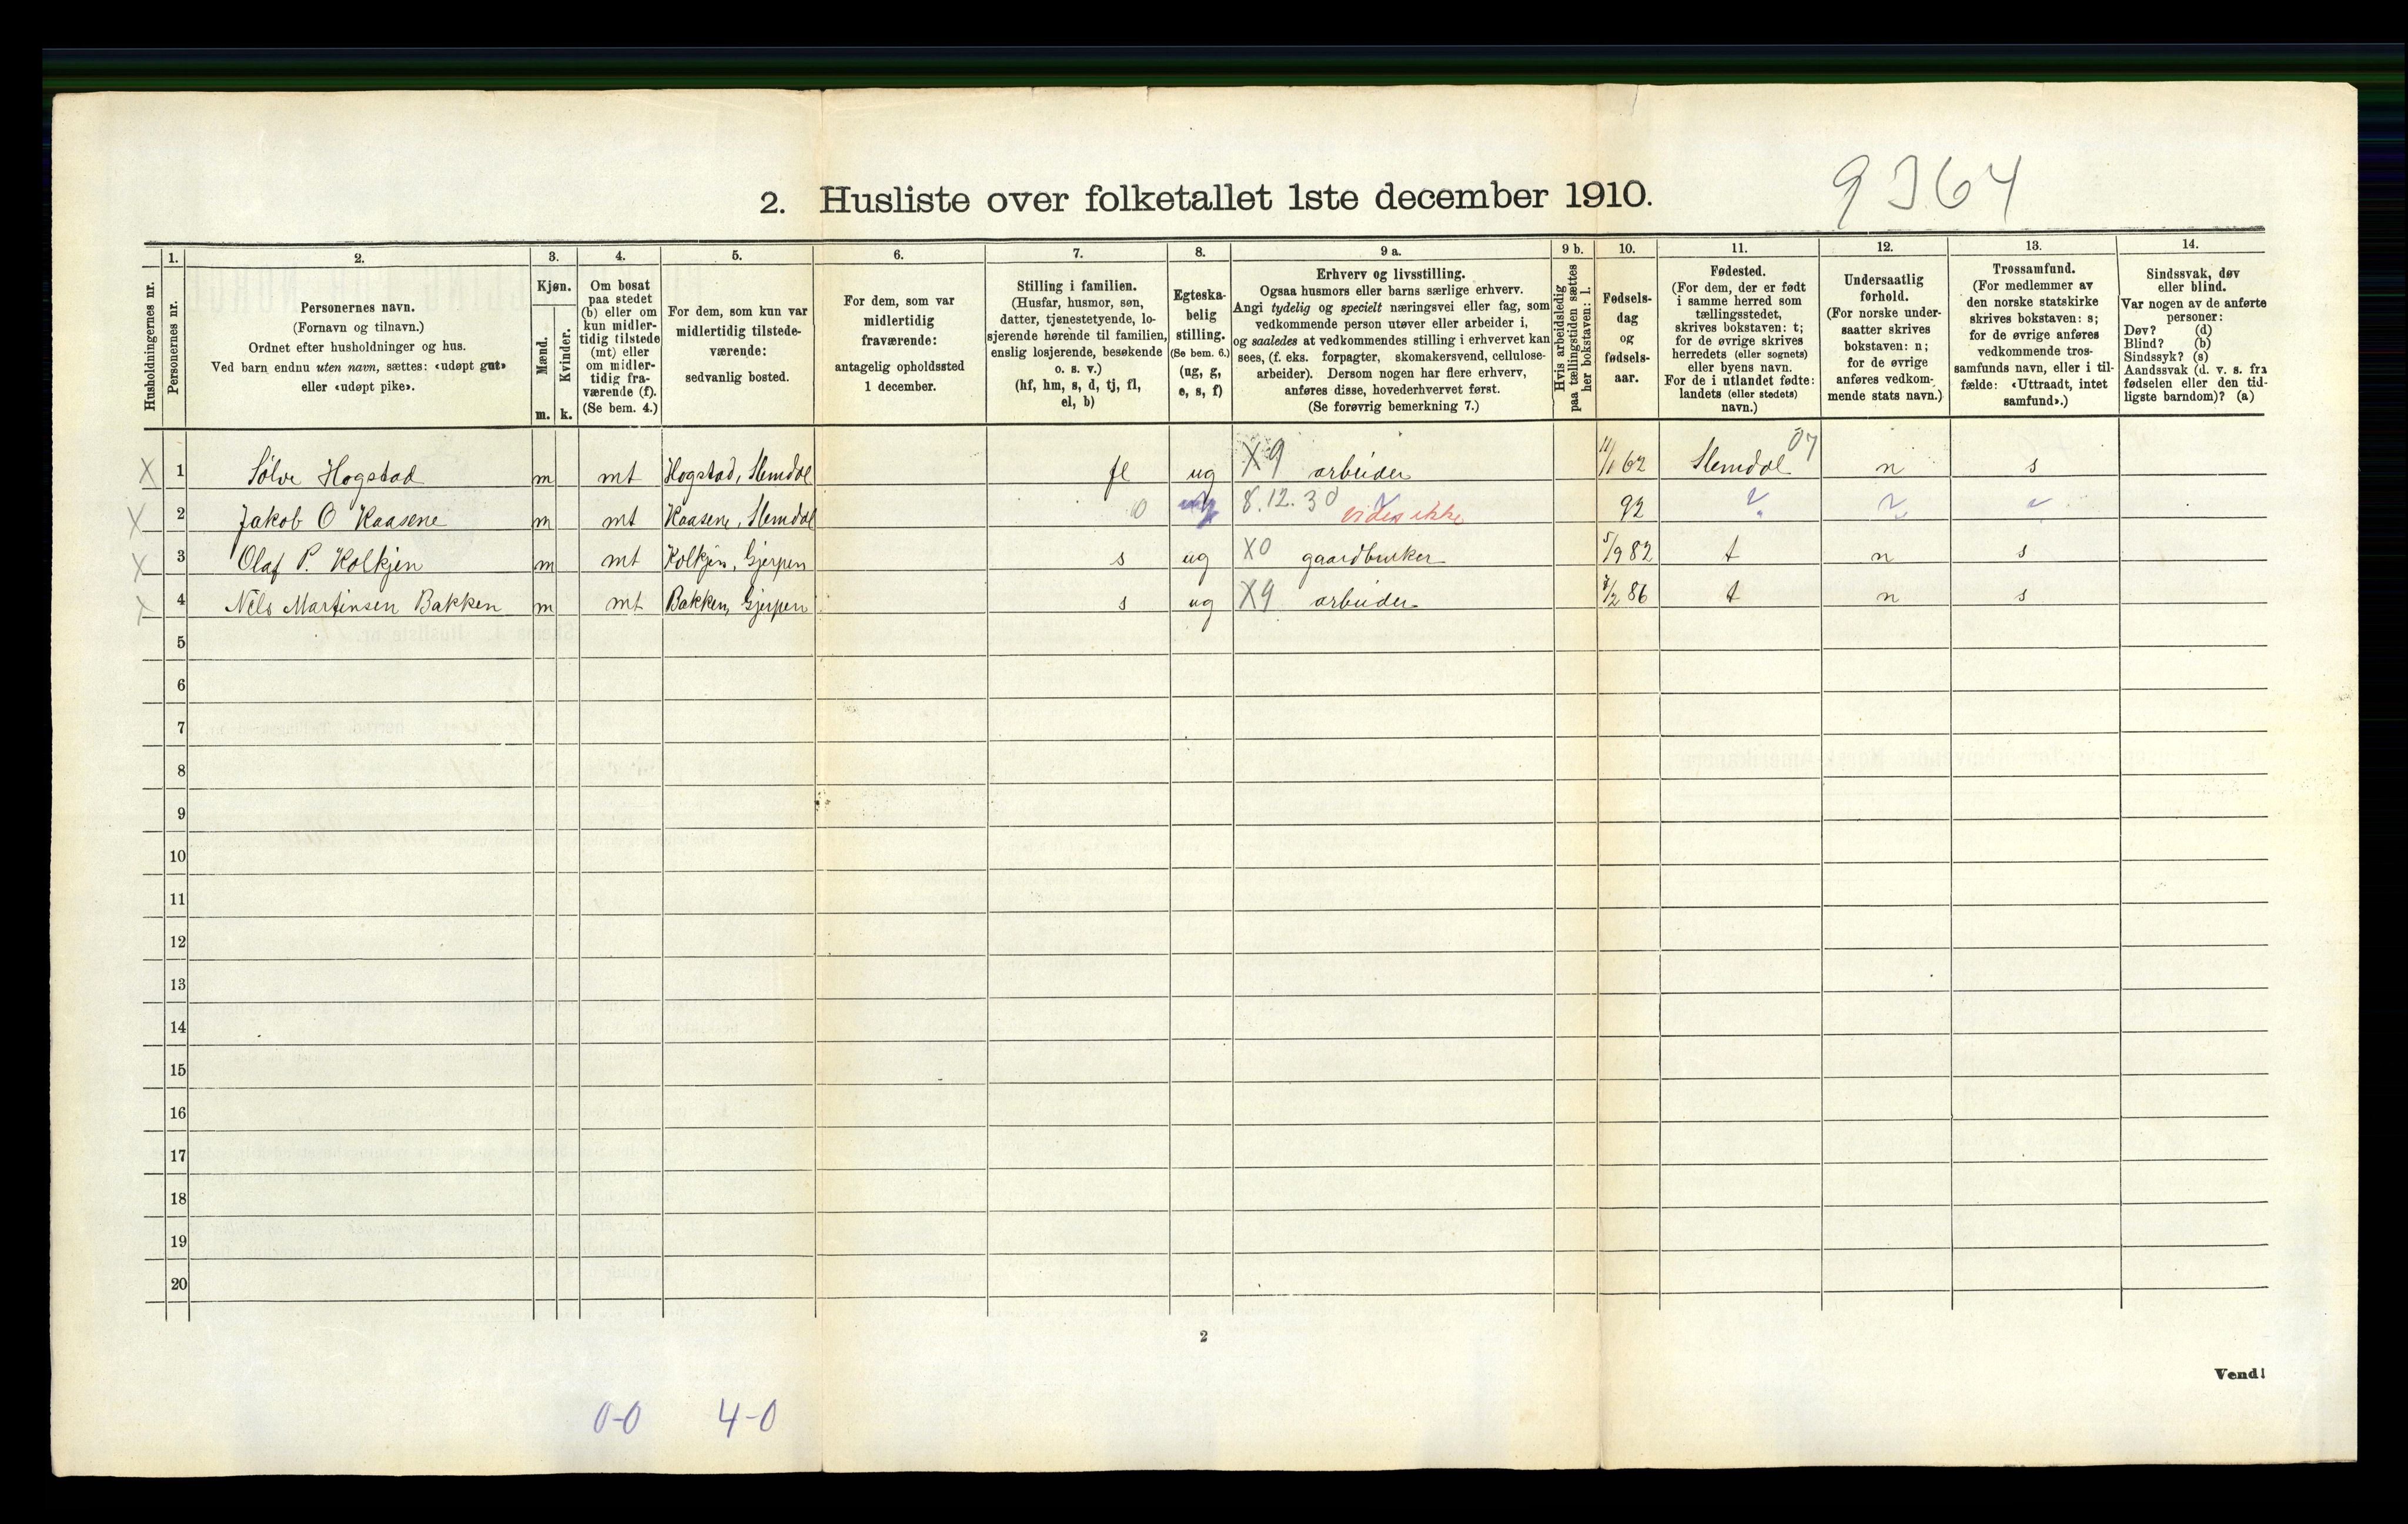 9364
2. Husliste over folketallet 1ste december 1910.
1. 2. 3. 4. 5. 6. 7. 8. 9 a. 9 b. 10. 11. 12. 13. 14.
Husholdningernes nr.
Personernes nr.
Personernes navn.
(Fornavn og tilnavn.)
Ordnet efter husholdninger og hus.
Ved barn endnu uten navn, sættes: «udøpt gut»
eller «udøpt pike».
Kjøn.
Mænd.
Kvinder.
m. k.
Om bosat
paa stedet
(b) eller om
kun midler-
tidig tilstede
(mt) eller
om midler-
tidig fra-
værende (f).
(Se bem. 4.)
For dem, som kun var
midlertidig tilstede-
værende:
sedvanlig bosted.
For dem, som var
midlertidig
fraværende:
antagelig opholdssted
1 december.
Stilling i familien.
(Husfar, husmor, søn,
datter, tjenestetyende, lo-
sjerende hørende til familien,
enslig losjerende, besøkende
o. s. v.)
(hf, hm, s, d, tj, fl,
el, b)
Egteska-
belig
stilling.
(Se bem. 6.)
(ug, g,
e, s, f)
Erhverv og livsstilling.
Ogsaa husmors eller barns særlige erhverv.
Angi tydelig og specielt næringsvei eller fag, som
vedkommende person utøver eller arbeider i,
og saaledes at vedkommendes stilling i erhvervet kan
sees, (f. eks. forpagter, skomakersvend, cellulose-
arbeider). Dersom nogen har flere erhverv,
anføres disse, hovederhvervet først.
(Se forøvrig bemerkning 7.)
Hvis arbeidsledig
paa tællingstiden sættes
her bokstaven: l.
Fødsels-
dag
og
fødsels-
aar.
Fødested.
(For dem, der er født
i samme herred som
tællingsstedet,
skrives bokstaven: t;
for de øvrige skrives
herredets (eller sognets)
eller byens navn.
For de i utlandet fødte:
landets (eller stedets)
navn.)
Undersaatlig
forhold.
(For norske under-
saatter skrives
bokstaven: n;
for de øvrige
anføres vedkom-
mende stats navn.)
Trossamfund.
(For medlemmer av
den norske statskirke
skrives bokstaven: s;
for de øvrige anføres
vedkommende tros-
samfunds navn, eller i til-
fælde: «Uttraadt, intet
samfund».)
Sindssvak, døv
eller blind.
Var nogen av de anførte
personer:
Døv? (d)
Blind? (b)
Sindssyk? (s)
Aandssvak (d. v. s. fra
fødselen eller den tid-
ligste barndom)? (a)
X 1 Sølve Hogstad m mt Hogstad, Slemdal fl ug X9 arbeider 11/1 62 Slemdal 07 n s
X 2 Jakob O Kaasene m mt Kaasene, Slemdal 0 8.12.30 vides ikke 92
X 3 Olaf P. Kolkjen m mt Kolkjen, Gjerpen s ug X0 gaardbruker 5/9 82 t n s
X 4 Nels Martinsen Bakken m mt Bakken, Gjerpen s ug X9 arbeider 7/2 86 t n s
5
6
7
8
9
10
11
12
13
14
15
16
17
18
19
20
2
Vend!
0-0 4-0